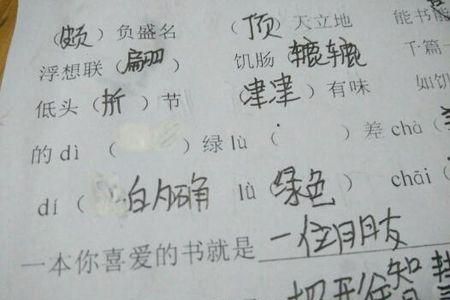 （颇）负盛名 （顶）天立地 能书
浮想联（翩） 饥肠（辘辘） 千篇一
低头（折）节 （津津）有味 如饥
的dì（ ）绿lù（ ）差chà（
dí（的确 lù 绿色）chāi（
一本你喜爱的书就是 一位朋友
把形容